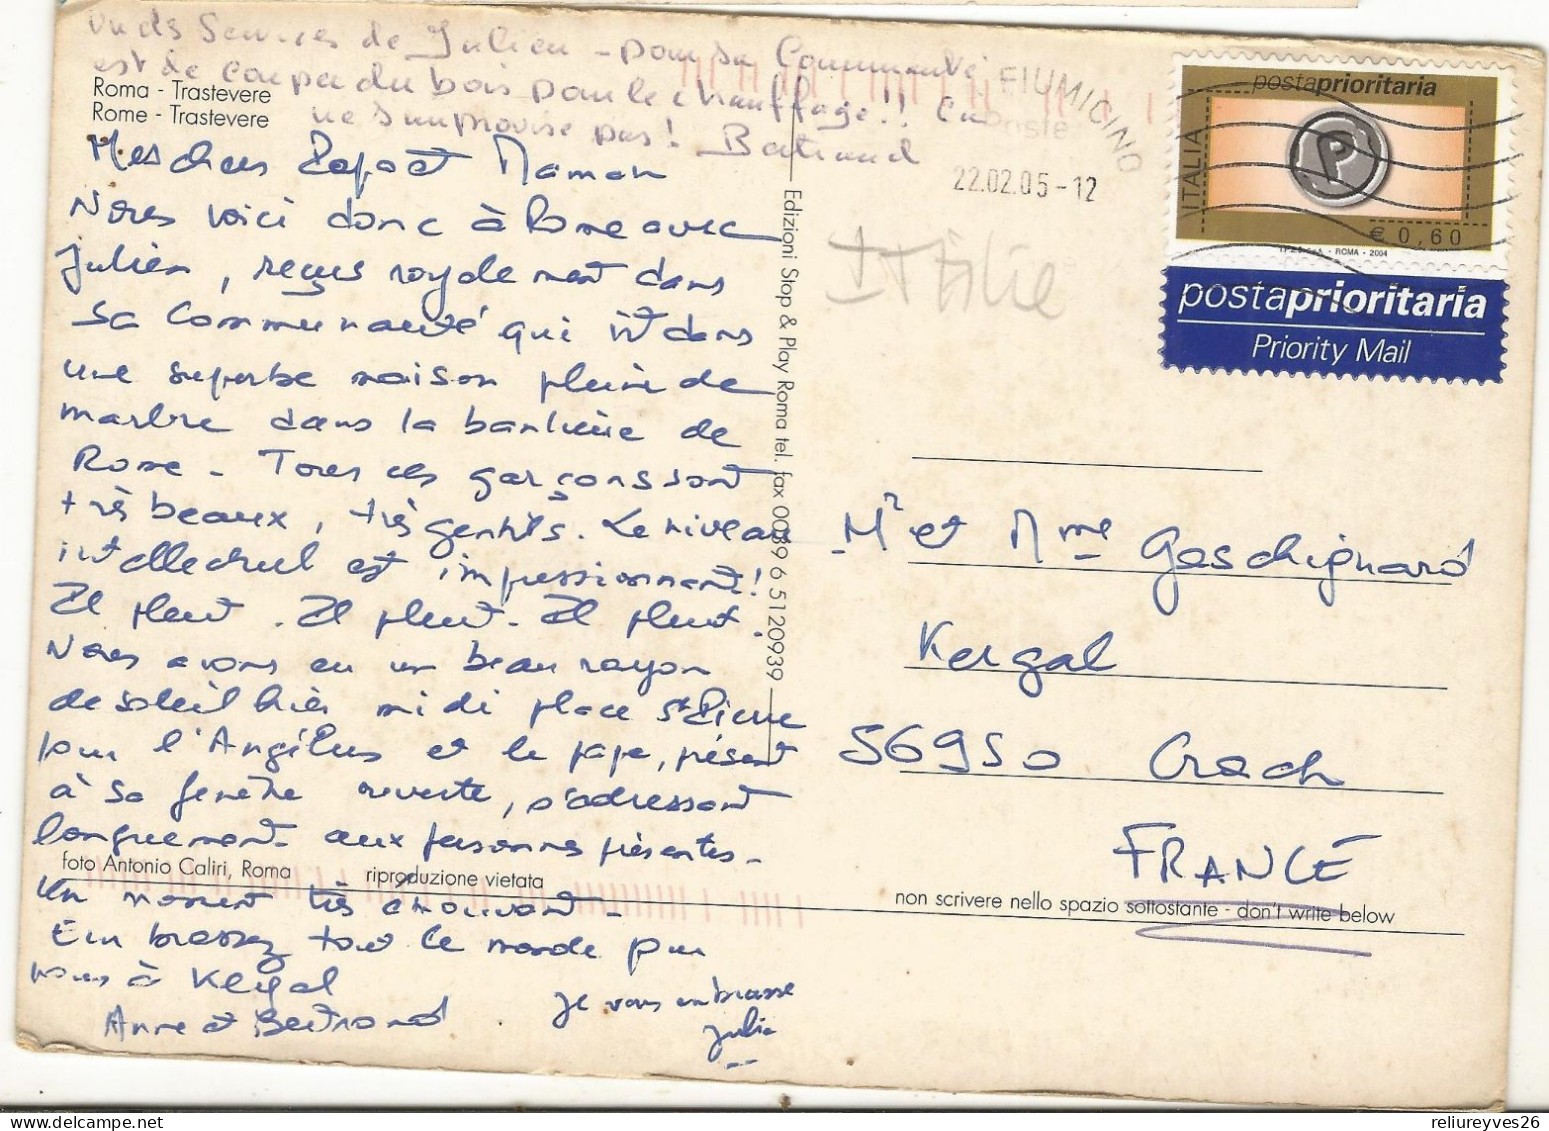 un ds Services de Julien - pour sa Communauté
est de couper du bois pour le chauffage !! Ca
ne s'improvise pas ! Bertrand
Roma - Trastevere
Rome - Trastevere
Mes chers Papa et Maman
Nous voici donc à Rome avec
Julien, reçus royalement dans
sa Communauté qui vit dans
une superbe maison pleine de
marbre dans la banlieue de
Rome - Tous ces garçons sont
très beaux, très gentils. Le niveau
intellectuel est impressionnant !
Il pleut. Il pleut. Il pleut.
Nous avons eu un beau rayon
de soleil hier midi place St Pierre
pour l'Angélus et le pape, présent
à sa fenêtre ouverte, s'adressant
longuement aux personnes présentes -
foto Antonio Caliri, Roma riproduzione vietata
Un moment très émouvant -
Embrassez tout le monde pour
nous à Kergal
Anne et Bertrand
Je vous embrasse
Julie
Edizioni Stop & Play Roma tel. fax 0039 6 5120939
FIUMICINO
Poste
22.02.05-12
Italie
postaprioritaria
ITALIA
P
€ 0,60
I.P.Z.S. S.p.A. - ROMA - 2004
postaprioritaria
Priority Mail
Mr et Mme Gaschignard
Kergal
56950 Crach
FRANCE
non scrivere nello spazio sottostante - don't write below
reliureyves26